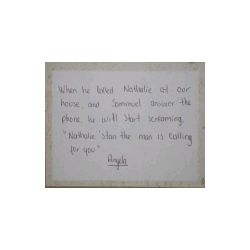 When he called Nathalie at our
house, and Sammuel answer the
phone, he will start screaming,
"Nathalie 'stan the man is calling
for you"
Angela